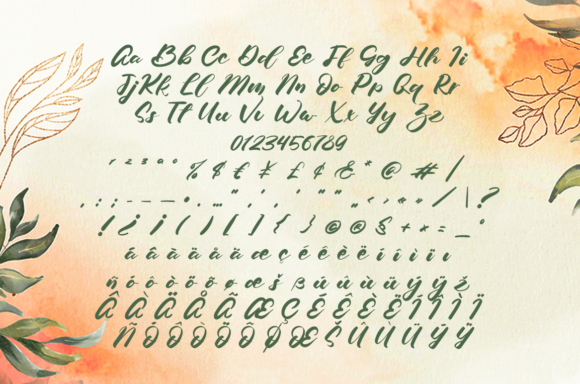 Aa Bb Cc Dd Ee Ff Gg Hh Ii
Jj Kk Ll Mm Nn Oo Pp Qq Rr
Ss Tt Uu Vv Ww Xx Yy Zz
0123456789
¹ ² ³ ª º % $ € ¥ £ ¢ & * @ # |
, . : ; - – — • . … " ' ‚ ' " „ ‹ › « » / \ ?
! ¿ ¡ ( ) [ ] { } © ® § + × = _ °
á â à ä å ã æ ç é ê è ë í î ì ï
ñ ó ô ò ö õ ø œ š ß ú û ù ü ý ÿ ž
Â À Ä Å Ã Æ Ç É Ê È Ë Í Î Ì Ï
Ñ Ó Ô Ò Ö Õ Ø Œ Š Ú Û Ù Ü Ý Ÿ